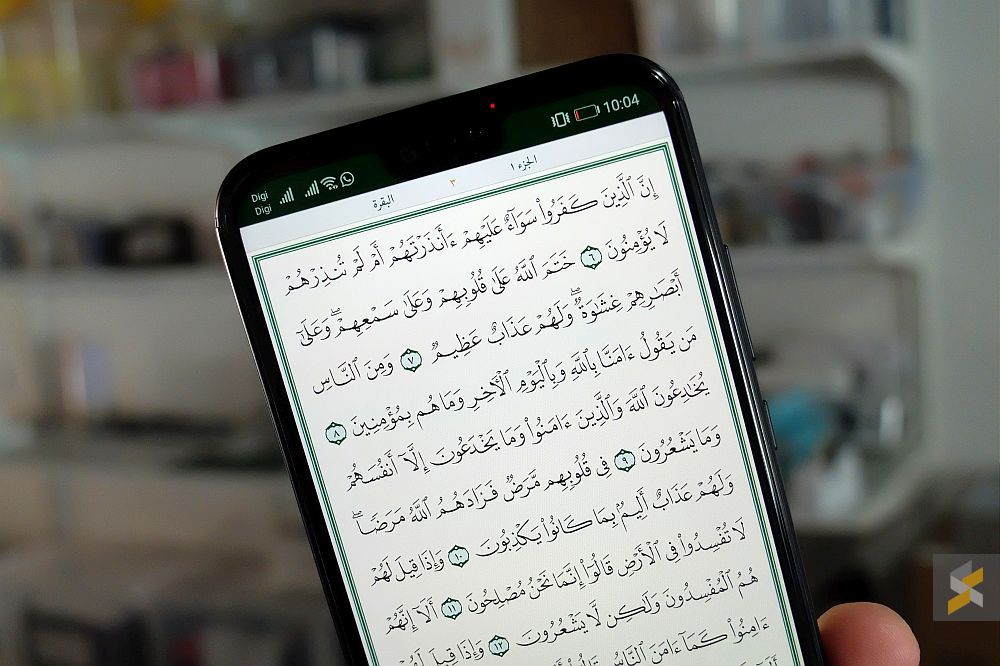 Digi
Digi
10:04
البقرة
٣
الجزء ١
إِنَّ ٱلَّذِينَ كَفَرُوا۟ سَوَآءٌ عَلَيْهِمْ ءَأَنذَرْتَهُمْ أَمْ لَمْ تُنذِرْهُمْ
لَا يُؤْمِنُونَ ٦ خَتَمَ ٱللَّهُ عَلَىٰ قُلُوبِهِمْ وَعَلَىٰ سَمْعِهِمْ ۖ وَعَلَىٰٓ
أَبْصَٰرِهِمْ غِشَٰوَةٌ ۖ وَلَهُمْ عَذَابٌ عَظِيمٌ ٧ وَمِنَ ٱلنَّاسِ
مَن يَقُولُ ءَامَنَّا بِٱللَّهِ وَبِٱلْيَوْمِ ٱلْأَخِرِ وَمَا هُم بِمُؤْمِنِينَ ٨
يُخَٰدِعُونَ ٱللَّهَ وَٱلَّذِينَ ءَامَنُوا۟ وَمَا يَخْدَعُونَ إِلَّآ أَنفُسَهُمْ
وَمَا يَشْعُرُونَ ٩ فِى قُلُوبِهِم مَّرَضٌ فَزَادَهُمُ ٱللَّهُ مَرَضًا ۖ
وَلَهُمْ عَذَابٌ أَلِيمٌۢ بِمَا كَانُوا۟ يَكْذِبُونَ ١٠ وَإِذَا قِيلَ لَهُمْ
لَا تُفْسِدُوا۟ فِى ٱلْأَرْضِ قَالُوٓا۟ إِنَّمَا نَحْنُ مُصْلِحُونَ ١١ أَلَآ إِنَّهُمْ
هُمُ ٱلْمُفْسِدُونَ وَلَٰكِن لَّا يَشْعُرُونَ ١٢ وَإِذَا قِيلَ لَهُمْ
ءَامِنُوا۟ كَمَآ ءَامَنَ ٱلنَّاسُ